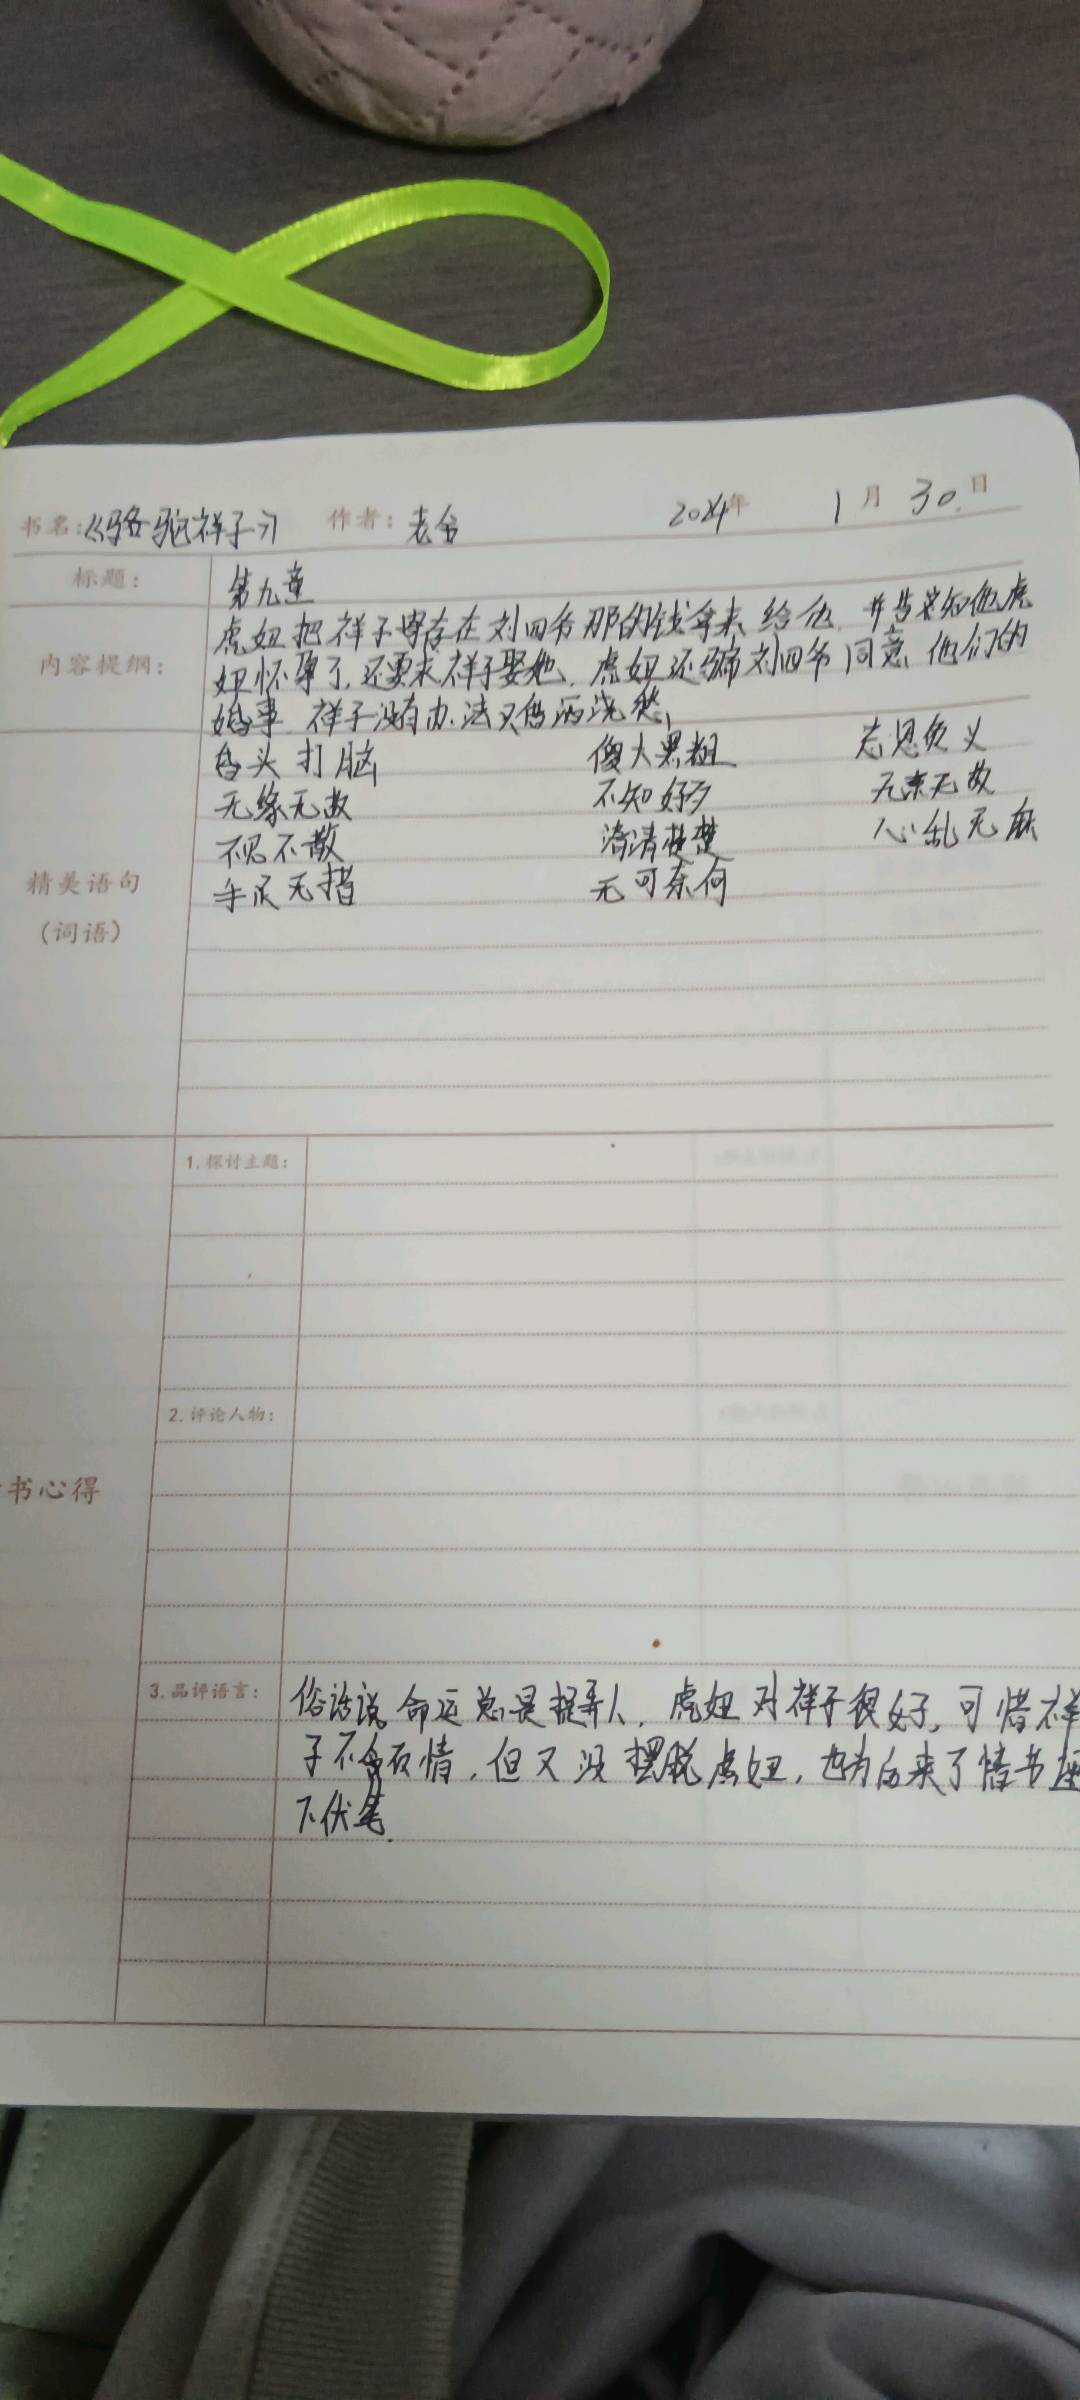 书名:《骆驼祥子》 作者: 老舍 2024年 1月 30日
标题: 第九章
虎妞把祥子寄存在刘四爷那的钱拿来给他 并告知他虎
内容提纲: 妞怀孕了,还要求祥子娶她,虎妞还骗刘四爷同意他们的
婚事 祥子没有办法 愁
昏头打脑 傻大黑粗 忘恩负义
无缘无故 不知好歹 无亲无故
不见不散 清清楚楚 心乱无麻
精美语句 手足无措 无可奈何
(词语)
1.探讨主题:
2.评论人物:
书心得
3.品评语言: 俗话说命运总是捉弄人,虎妞对祥子很好,可惜祥
子不 情,但又没摆脱虎妞,也为后来了情书埋
下伏笔.